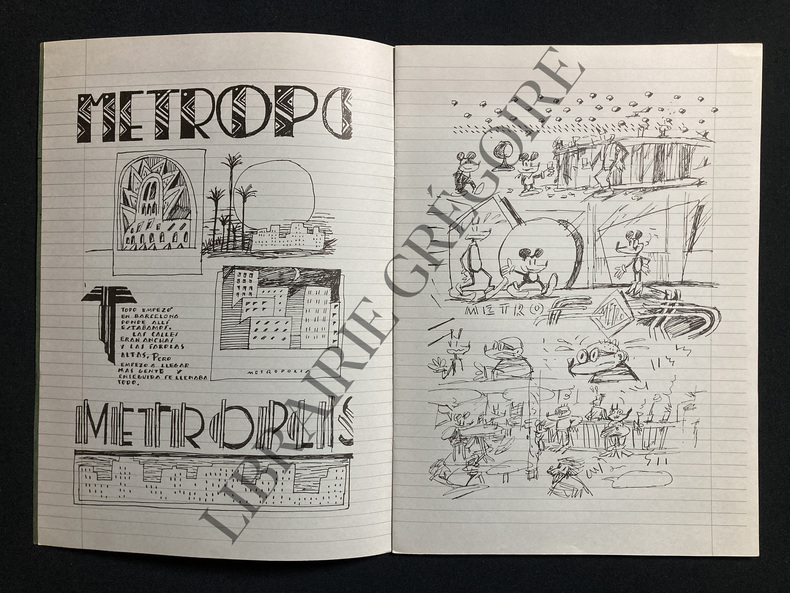 METROPO
TODO EMPEZÓ
EN BARCELONA
DONDE ALLÍ
ESTABAMOS.
LAS CALLES
ERAN ANCHAS
Y LAS FAROLAS
ALTAS. PERO
EMPEZÓ A LLEGAR
MAS GENTE Y
ENSEGUIDA SE LLENABA
TODO.
METROPOLIS
METROPOLIS
METRO
LIBRAIRIE GRÉGOIRE